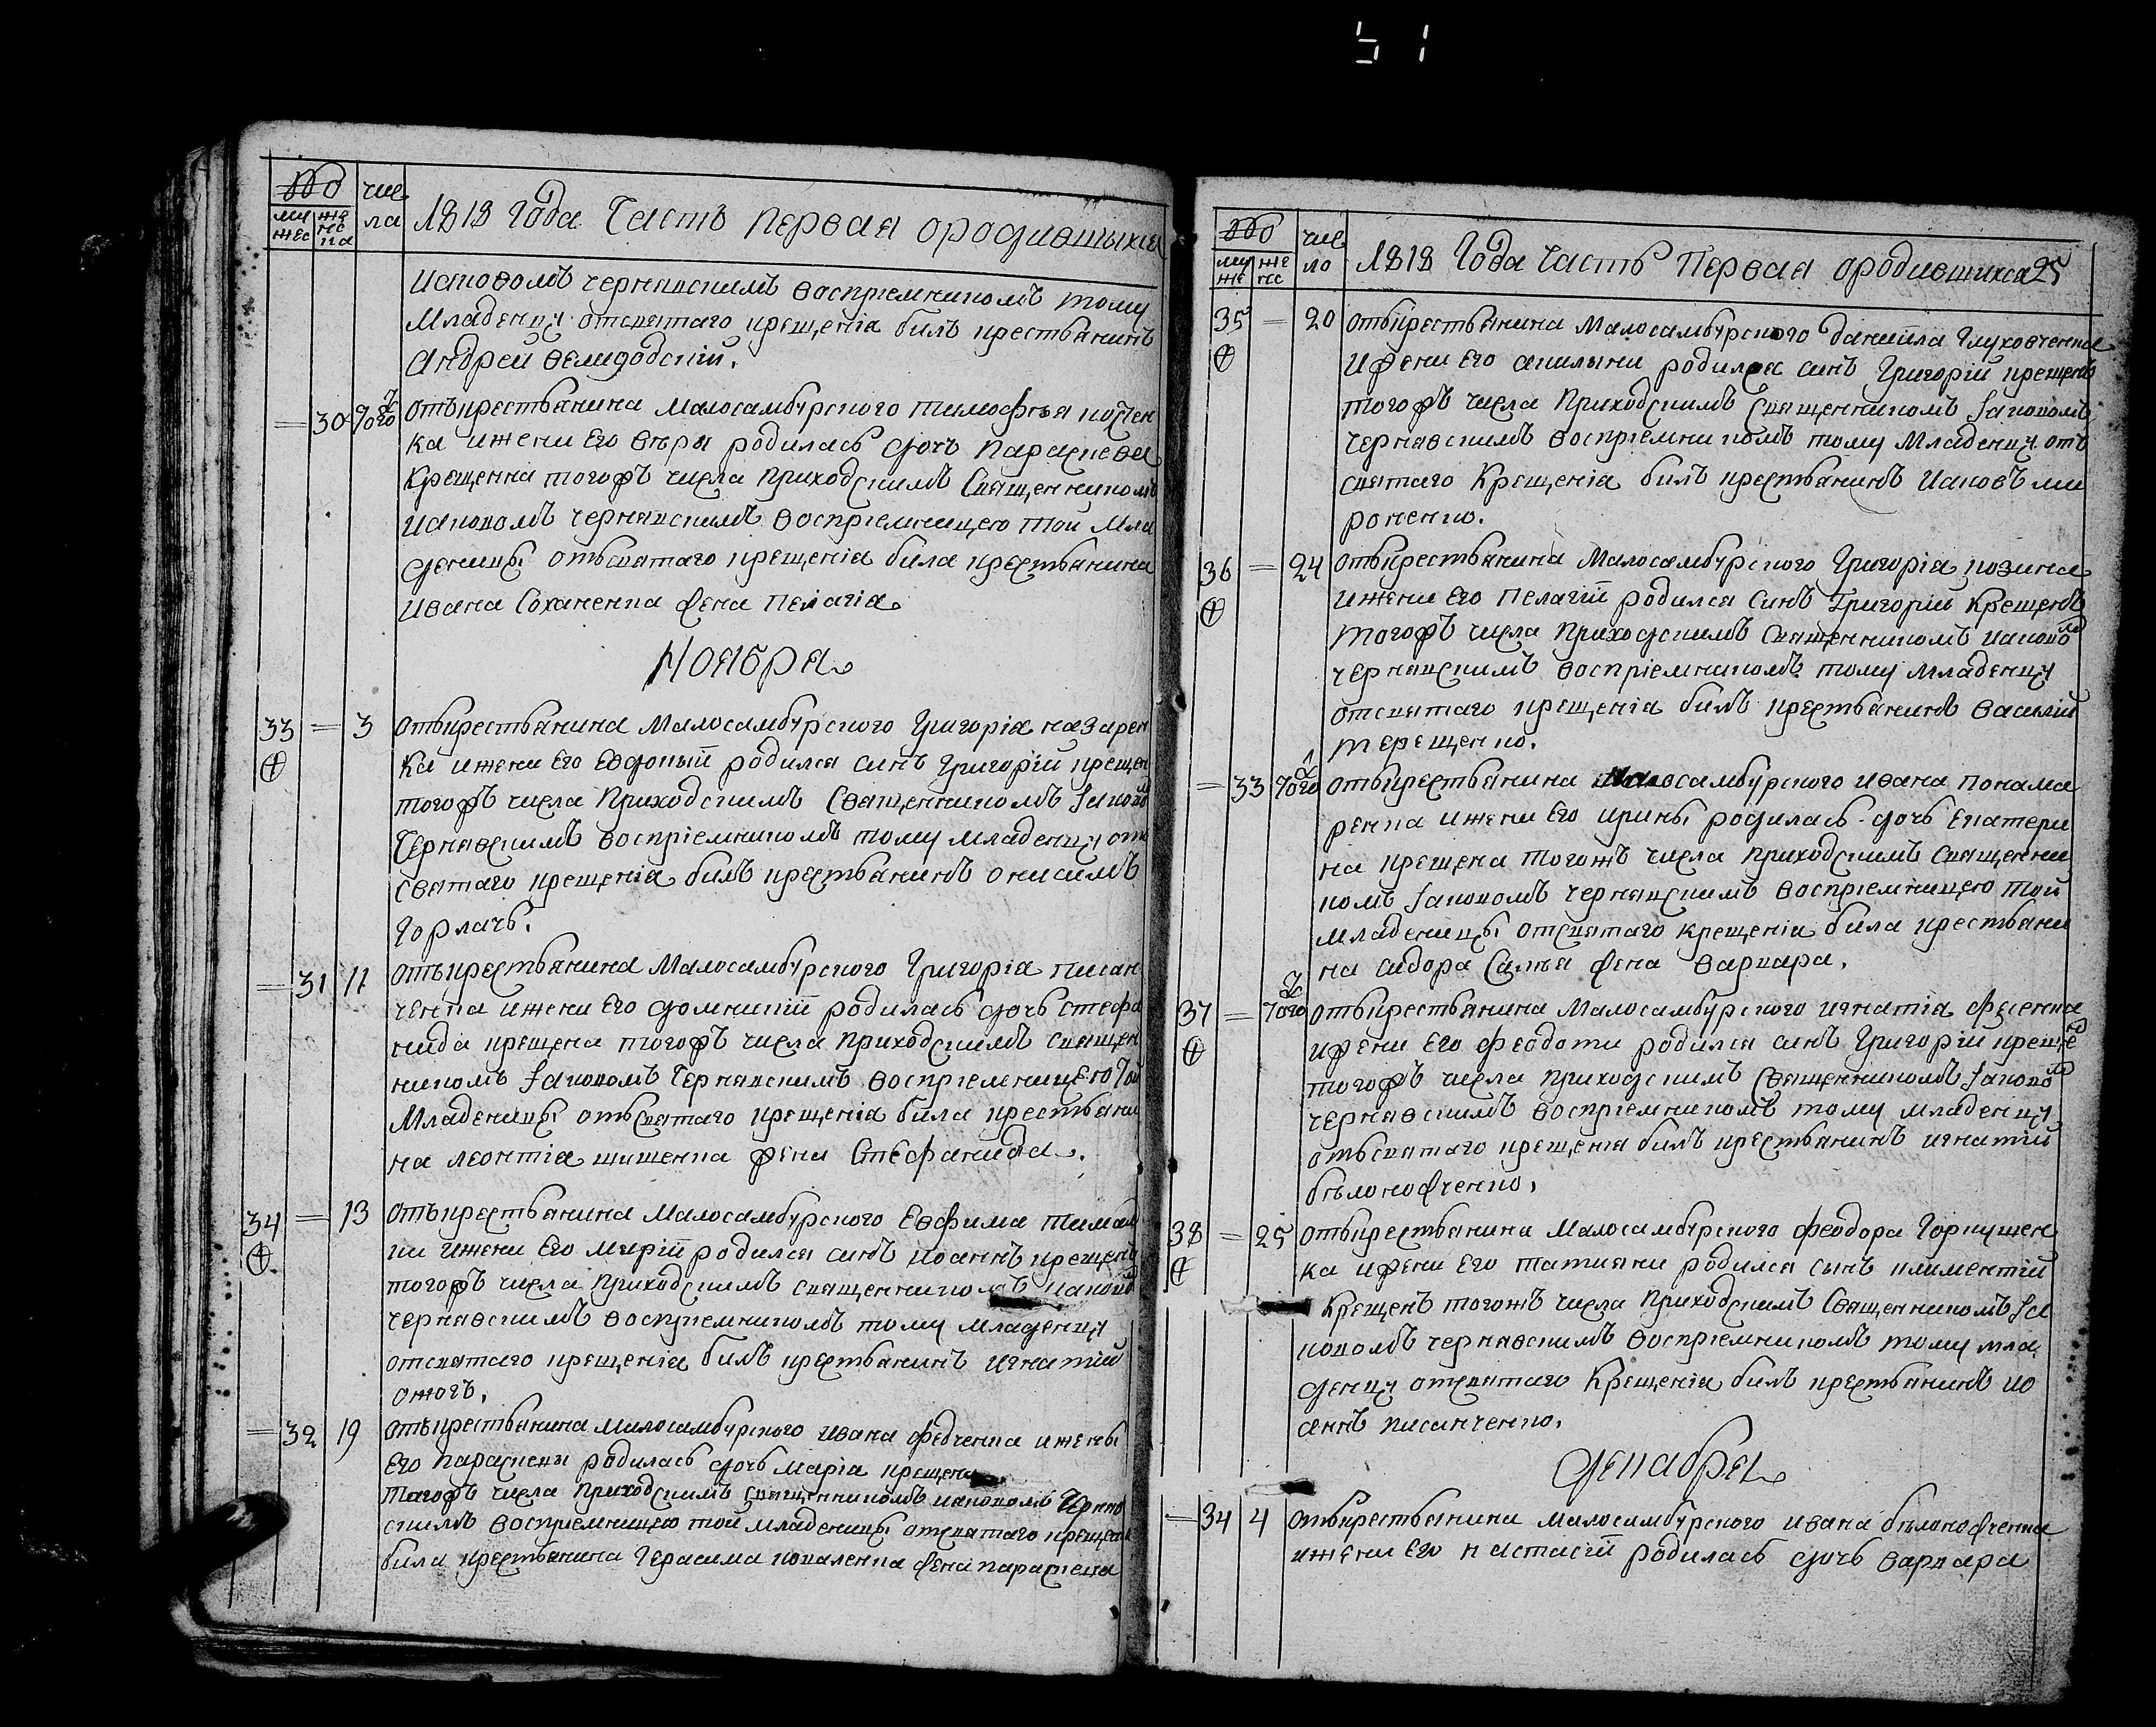 51
числа
муж жен
1818 года Часть Первая ородившыхся
Иаковомъ чернявскимъ воспріемникомъ тому
Младенцу отсвятаго крещенія билъ крестьянинъ
Андрей
= 30 того отъкрестьянина Малосамбурского тимофѣя
ка ижени Его вѣры родилась дочъ Параскева
Крещенна тогожъ числа Приходскимъ Священникомъ
Иаковомъ чернявскимъ воспріемницею той Мла
деницы отъсвятаго крещеніа била крестьянина
Ивана Соханенка жена Пелагіа.
Ноября
33 = 3 отъкрестьянина Малосамбурского Григоріа назарен
ка ижени Его Евдокіи родился синъ Григорій крещен
тогожъ числа Приходскимъ Священникомъ Іаковом
Чернявскимъ воспріемникомъ тому младенцу отъ
святаго крещеніа билъ крестьянинъ онисимъ
Горлачъ.
= 31 11 отъкрестьянина Малосамбурского Григоріа писан
ченка ижени Его домникіи родилась дочъ стефа
нида крещена тогожъ числа Приходскимъ священ
никомъ Іаковомъ Чернявскимъ воспріемницею той
Младеницы отъсвятаго крещеніа била крестьяни
на леонтіа шишенка жена Стефанида.
34 = 13 отъкрестьянина Малосамбурского Евфима
ки ижени Его маріи родился синъ иоаннъ крещенъ
тогожъ числа Приходскимъ священникомъ иаковом
чернявскимъ воспріемникомъ тому младенцу
отсвятаго крещеніа билъ крестьянинъ игнатій
ожогъ.
= 32 19 отъкрестьянина малосамбурского ивана федченка ижены
Его параскевы родилась дочъ маріа крещена
тогожъ числа Приходскимъ священникомъ иаковомъ Черняв
скимъ воспріемницею той младеницы отсвятаго крещеніа
била крестьянина Герасима коваленка жена параскева
число
муже женс
1818 Года Часть Первая ородившихся 25
35 = 20 отъкрестьянина Малосамбурского данийла Глуховченка
ижени Его акилыни родился синъ Григорій крещенъ
тогожъ числа Приходскимъ Священникомъ Іаковомъ
чернявскимъ воспріемникомъ тому Младенцу отъ
святаго Крещеніа билъ крестьянинъ Иаковъ ми
роненко.
36 = 24 отъкрестьянина Малосамбурского Григоріа козина
ижени Его Пелагіи родился Синъ Григорій Крещенъ
тогожъ числа Приходскимъ Священникомъ иаковом
чернявскимъ воспріемникомъ тому младенцу
отсвятаго крещеніа билъ крестьянинъ василій
терещенко.
= 33 того отъкрестьянина Малосамбурского ивана понама
ренка ижени Его ирины родилась дочъ Екатери
на крещена тогожъ числа Приходскимъ священни
комъ Іаковомъ чернявскимъ воспріемницею той
младеницы отсвятаго крещеніа била крестьяни
на сидора Салія жена варвара.
37 = того отъкрестьянина Малосамбурского игнатіа фесенка
ижени Его феодоти родился синъ Григорій креще
тогожъ числа Приходскимъ Священникомъ Іаковом
чернявскимъ воспріемникомъ тому младенцу
отъсвятаго крещеніа билъ крестьянинъ игнатій
бѣлоножченко,
38 = 25 отъкрестьянина Малосамбурского феодора Горкушен
ка ижени Его татияни родился сынъ климентій
Крещенъ тогожъ числа Приходскимъ Священникомъ Іа
ковомъ чернявскимъ воспріемникомъ тому мла
денцу отсвятаго Крещеніа билъ крестьянинъ ио
аннъ писанченко,
Декабря
= 34 4 отъкрестьянина малосамбурского ивана бѣлоножченка
ижени Его настасіи родилась дочъ варвара